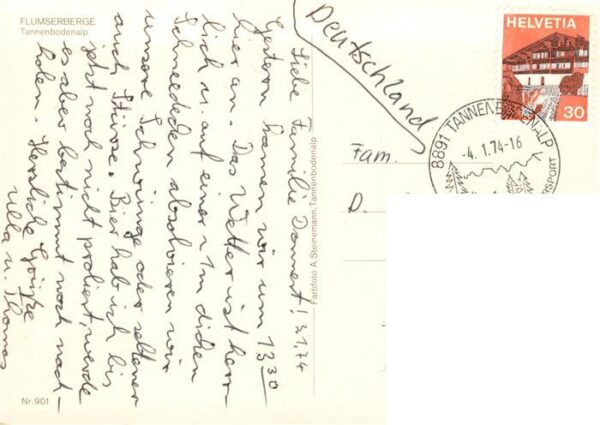 FLUMSERBERGE
Tannenbodenalp
Liebe Familie Donnert! 3.1.74
Gestern kamen wir um 13 30
hier an. Das Wetter ist herr
lich u. auf einer 1 m dicken
Schneeboden absolvieren wir
unsere Schwünge oder seltener
auch Stürze. Bier hab ich bis
jetzt noch nicht probiert, werde
es aber bestimmt noch nach-
holen. Herzliche Grüße
Ulla u. Thomas
Nr. 901
Farbfoto A. Steinemann, Tannenbodenalp
Deutschland
Fam.
D.
HELVETIA
30
8891 TANNENBODENALP
-4.1.74-16